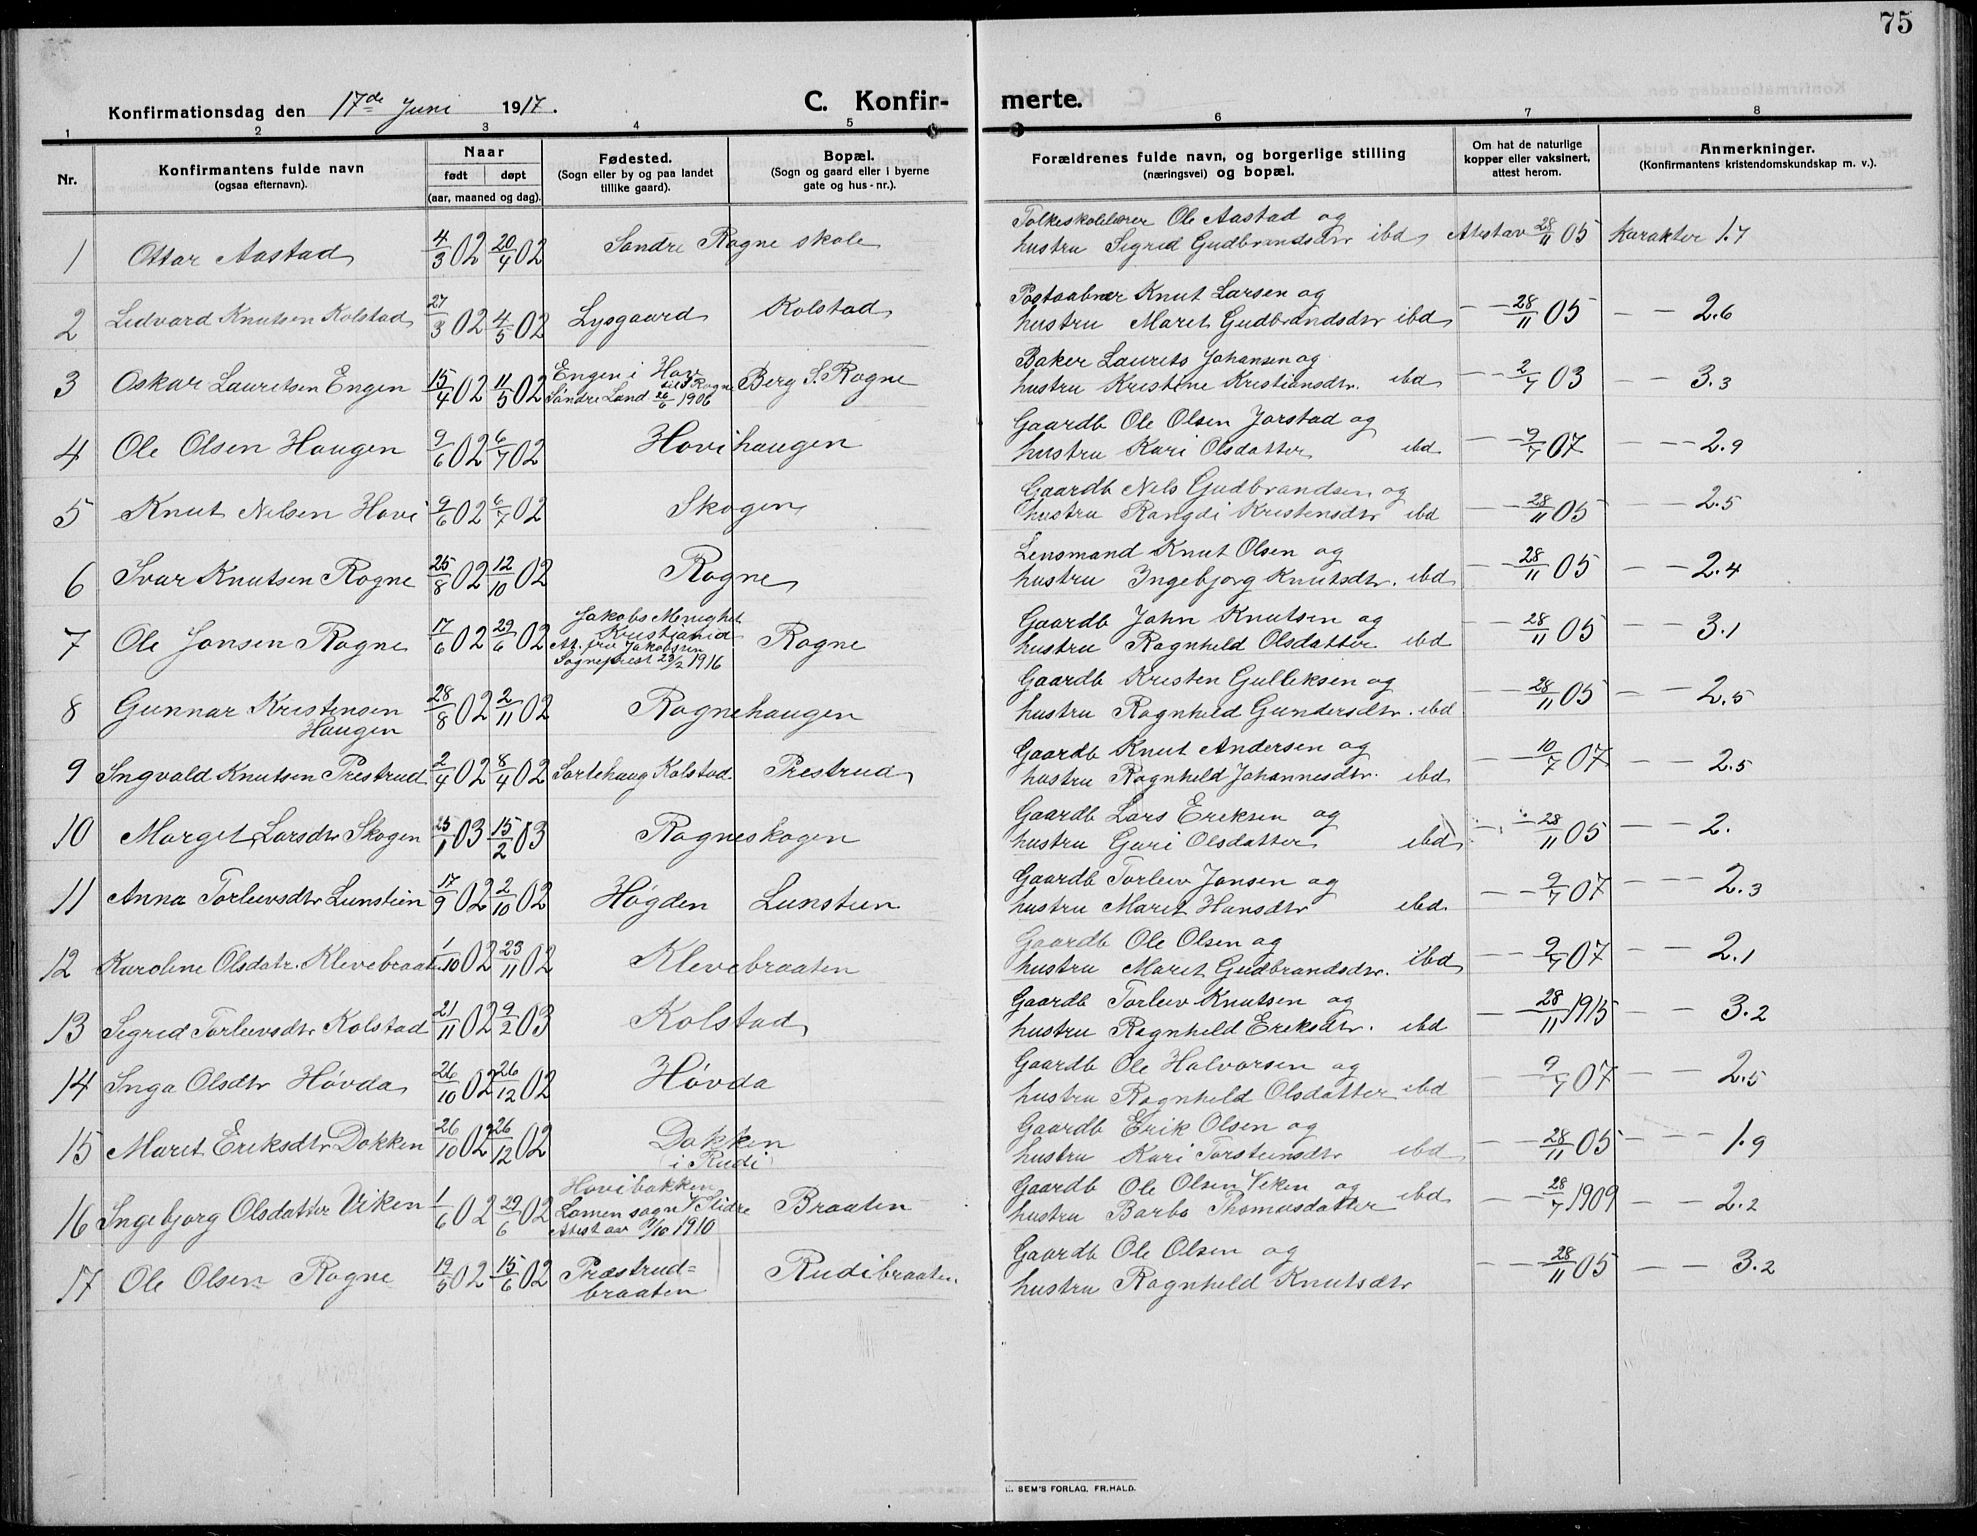 75
Konfirmationsdag den 17de Juni 1917.
C. Konfirmerte.
1 2 3 4 5 6 7 8
Nr.
Konfirmantens fulde navn
(ogsaa efternavn).
Naar
født døpt
(aar, maaned og dag).
Fødested.
(Sogn eller by og paa landet
tillike gaard).
Bopæl.
(Sogn og gaard eller i byerne
gate og hus-nr.).
Forældrenes fulde navn, og borgerlige stilling
(næringsvei) og bopæl.
Om hat de naturlige
kopper eller vaksinert,
attest herom.
Anmerkninger.
(Konfirmantens kristendomskundskap m. v.).
1 Ottar Aastad 4/3 02 20/4 02 Søndre Rogne skole
Folkeskolelærer Ole Aastad og
hustru Sigrid Gudbrandsdtr ibd Attest av 28/11 05 Karakter 1.7
2 Lidvard Knutsen Kolstad 27/3 02 4/5 02 Lysgaard Kolstad
Postaabner Knut Larsen og
hustru Marit Gudbrandsdtr ibd — — 28/11 05 — — 2.6
3 Oskar Lauritsen Engen 15/4 02 11/5 02 Engen i Hov Søndre Land 26/6 1906 Berg S. Rogne
Baker Laurits Johansen og
hustru Kristine Kristiansdtr. ibd — — 2/7 03 — — 3.3
4 Ole Olsen Haugen 9/6 02 6/7 02 Hovihaugen
Gaardb Ole Olsen Jarstad og
hustru Kari Olsdatter ibd — — 9/7 07 — — 2.9
5 Knut Nilsen Hovi 9/6 02 6/7 02 Skogen
Gaardb Nels Gudbrandsen og
hustru Rangdi Kristensdtr ibd — — 28/11 05 — — 2.5
6 Ivar Knutsen Rogne 25/8 02 12/10 02 Rogne
Lensmand Knut Olsen og
hustru Ingebjorg Knutsdtr. ibd — — 28/11 05 — — 2.4
7 Ole Jonsen Rogne 17/6 02 29/6 02 Jakobs Menighet
Kristiania
At. fra Jakobssen
Sogneprest 23/2 1916 Rogne
Gaardb John Knutsen og
hustru Ragnheld Olsdatter ibd — — 28/11 05 — — 3.1
8 Gunnar Kristensen
Haugen 28/8 02 2/11 02 Rognehaugen
Gaardb Kristen Gulleksen og
hustru Ragnheld Gundersdtr. ibd — — 28/11 05 — — 2.5
9 Ingvald Knutsen Prestrud 2/4 02 8/4 02 Sortehaug Kolstad Prestrud
Gaardb Knut Andersen og
hustru Ragnheld Johannesdtr. ibd — — 10/7 07 — — 2.5
10 Marget Larsdtr Skogen 25/1 03 15/2 03 Rogneskogen
Gaardb Lars Eriksen og
hustru Guri Olsdatter ibd — — 28/11 05 — — 2.
11 Anna Torleivsdtr Lunstein 17/9 02 2/10 02 Høgden Lunstein
Gaardb Torleiv Jonsen og
hustru Marit Hansdtr ibd. — — 9/7 07 — — 2.3
12 Karoline Olsdatr. Klevebraaten 1/10 02 23/11 02 Klevebraaten
Gaardb Ole Olsen og
hustru Marit Gudbrandsdtr. ibd — — 9/7 07 — — 2.1
13 Sigrid Torleivsdtr Kolstad 21/11 02 9/2 03 Kolstad
Gaardb Torleiv Knutsen og
hustru Ragnheld Eriksdtr. ibd — 28/11 1915 — — 3.2
14 Inga Olsdtr Høvda 26/10 02 26/12 02 Høvda
Gaardb Ole Halvorsen og
hustru Ragnheld Olsdatter ibd — — 9/7 07 — — 2.5
15 Marit Eriksdtr Dokken 26/10 02 26/12 02 Dokken
(i Rudi)
Gaardb Erik Olsen og
hustru Kari Torsteinsdtr ibd — — 28/11 05 — — 1.9
16 Ingebjorg Olsdatter Viken 1/6 02 29/6 02 Hovibakken
Lomen sogn V Slidre
Attest av 9/10 1910 Braaten
Gaardb Ole Olsen Viken og
hustru Barbo Thomasdatter ibd — — 28/7 1909 — — 2.2
17 Ole Olsen Rogne 19/5 02 15/6 02 Præstrud=
braaten Rudibraaten.
Gaardb Ole Olsen og
hustru Ragnheld Knutsdtr — — 28/11 05 — — 3.2
SEM'S FORLAG, FR.HALD.